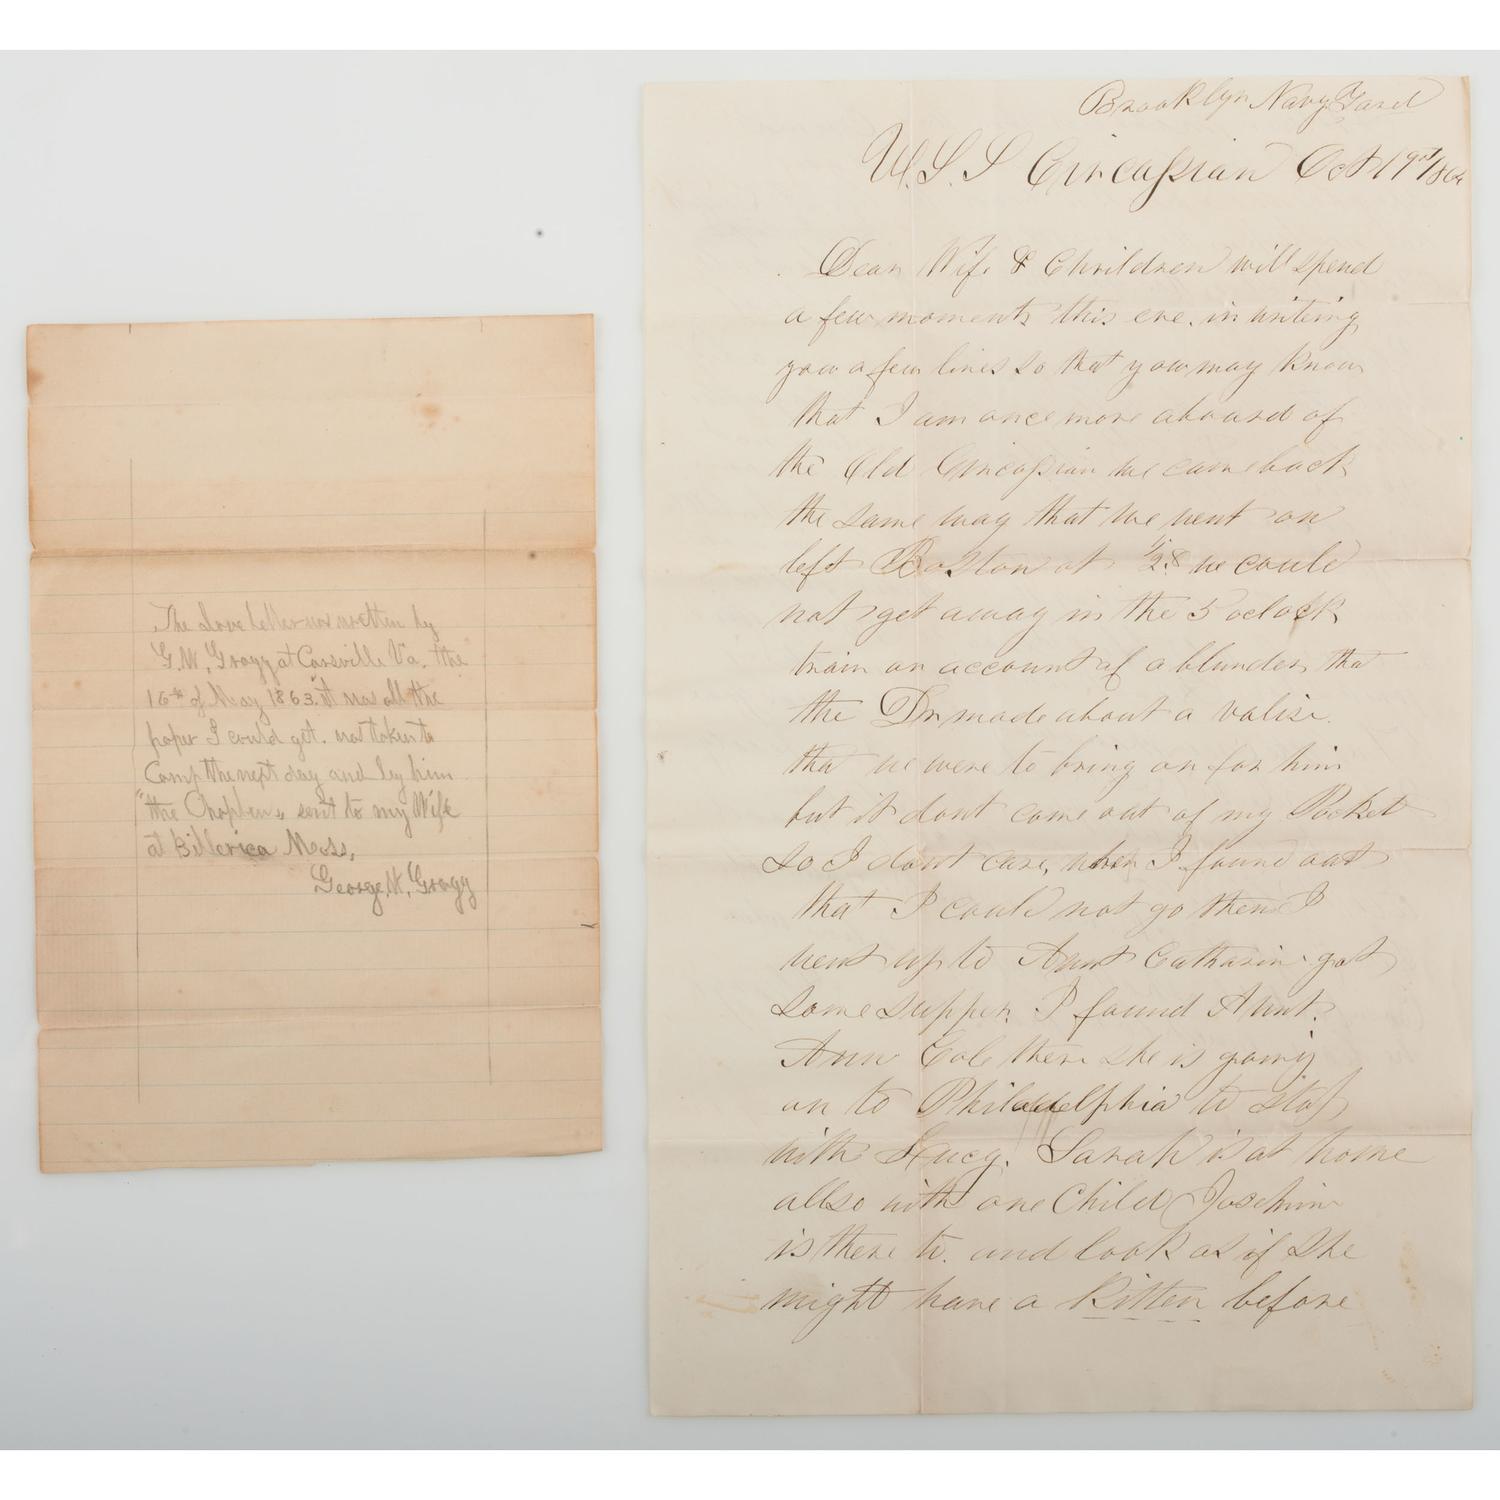 The above letter was written by
G.W. Gragg at Carsville Va. the
16th of May 1863. "It was all the
paper I could get. was taken to
Camp the next day and by him
"the Chaplin" sent to my Wife
at Billerica Mass.
George W. Gragg
Brooklyn Navy Yard
U.S.S Circassian Oct 19th 1864
Dear Wife & Chrildren will spend
a few moments this eve. in writeing
you a few lines so that you may know
that I am once more aboard of
the Old Circassian we came back
the same way that we went on
left Boston at 1/2 8 we could
not get away in the 5 oclock
train on account of a blunder that
the Dr. made about a valise.
that we were to bring on for him
but it dont come out of my Pocket
so I dont care, when I found out
that I could not go then I
went up to Aunt Catharin got
some supper. I found Aunt.
Ann Cole there she is going
on to Philadelphia to stop
with Lucy. Sarah is at home
allso with one Child Josephine
is there to. and look as if she
might have a Kitten before